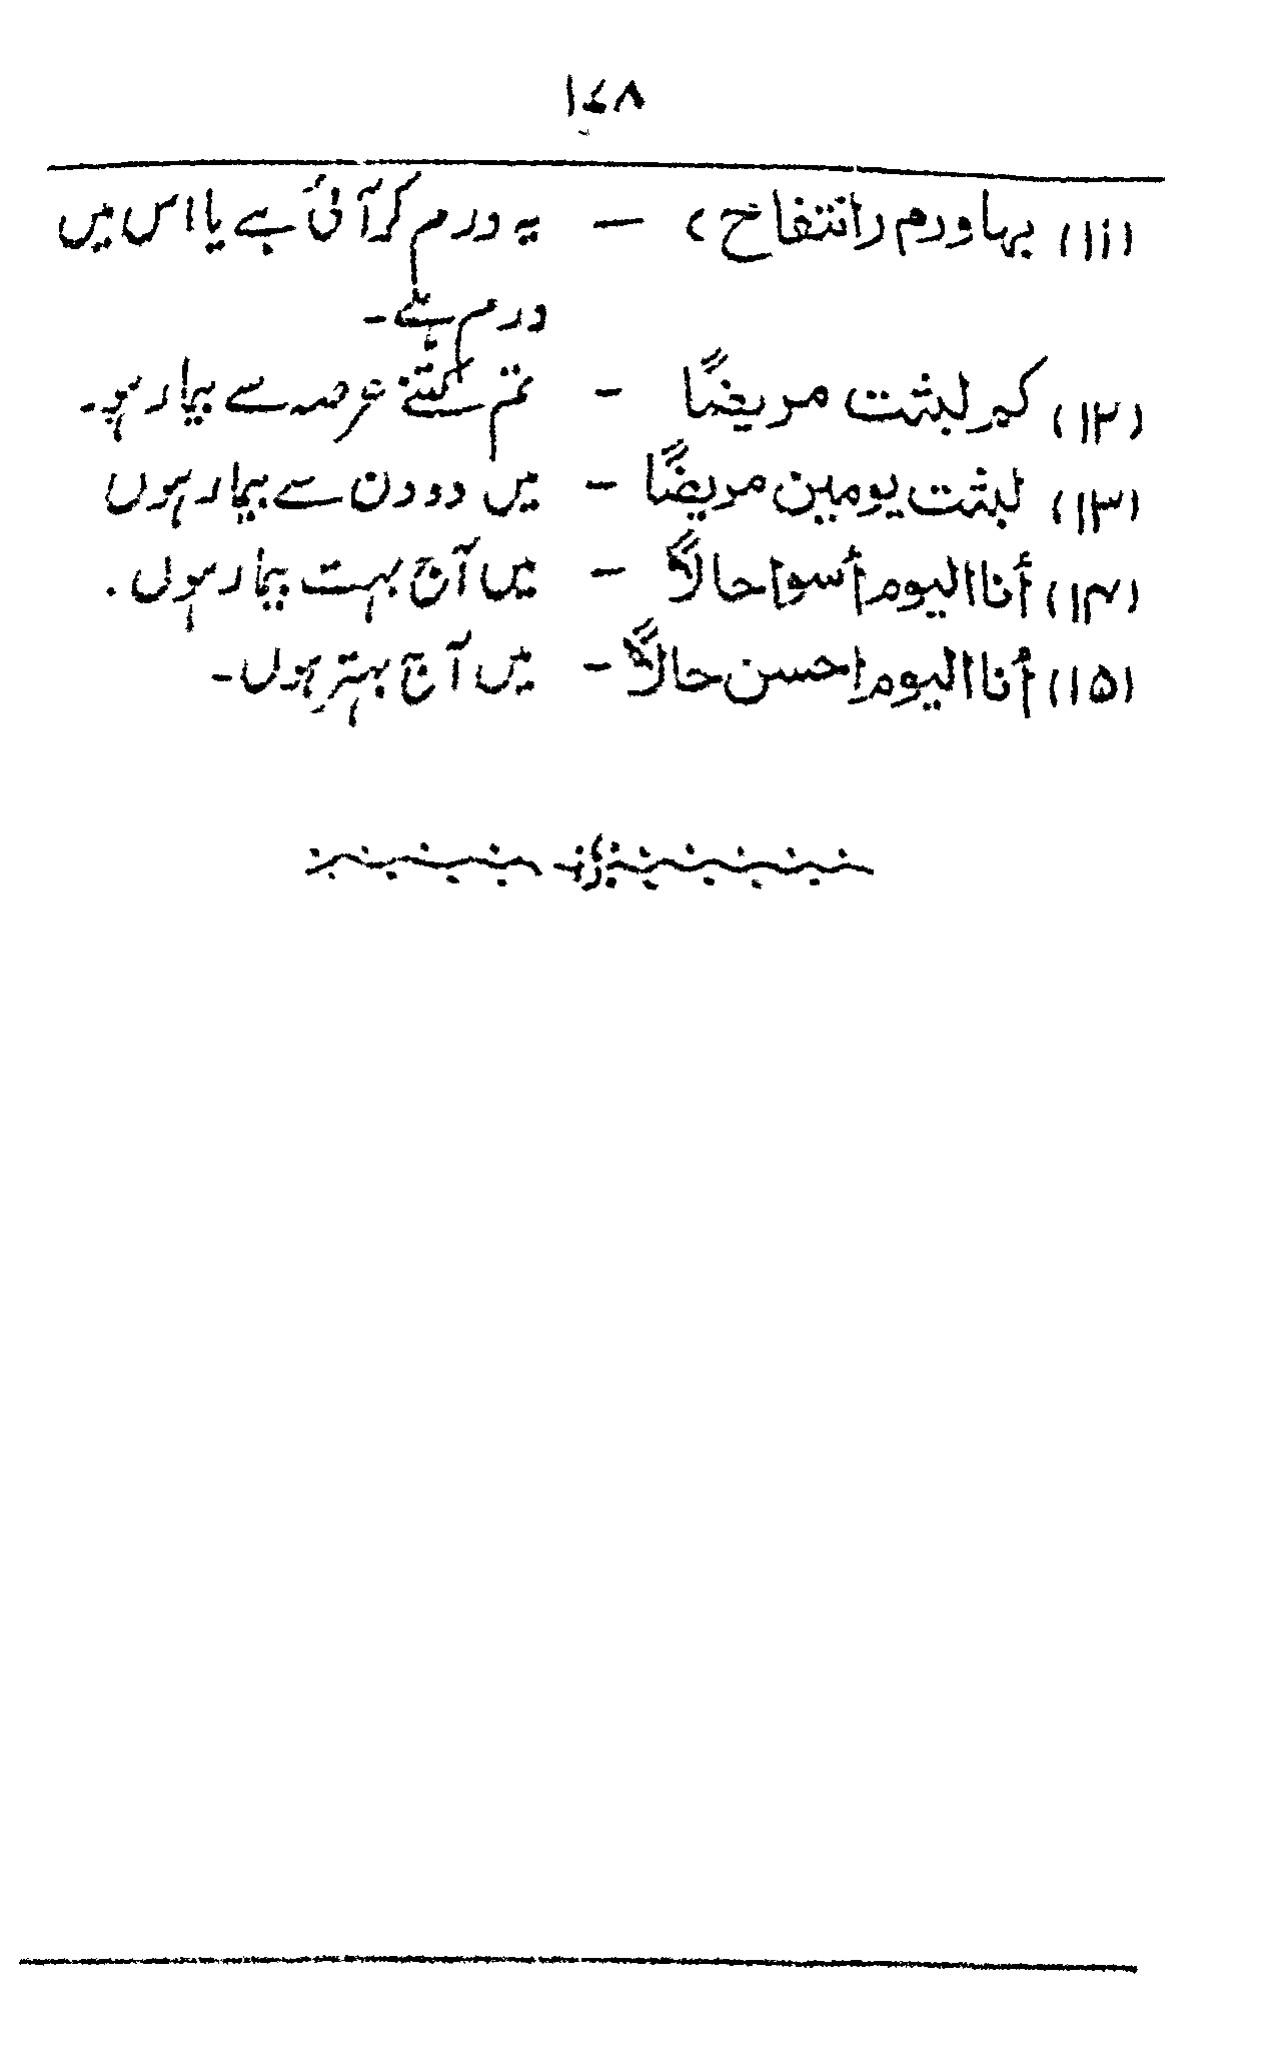 ۱۷۸
(۱۱) بہا ورم (انتفاخ) — یہ ورم کر آئی ہے یا اس میں
ورم ہے۔
(۱۲) کم لبثت مریضًا - تم کتنے عرصہ سے بیمار ہو۔
(۱۳) لبثت یومین مریضًا - میں دو دن سے بیمار ہوں
(۱۴) أنا الیوم أسوا حالاً - میں آج بہت بیمار ہوں.
(۱۵) أنا الیوم احسن حالاً - میں آج بہتر ہوں۔